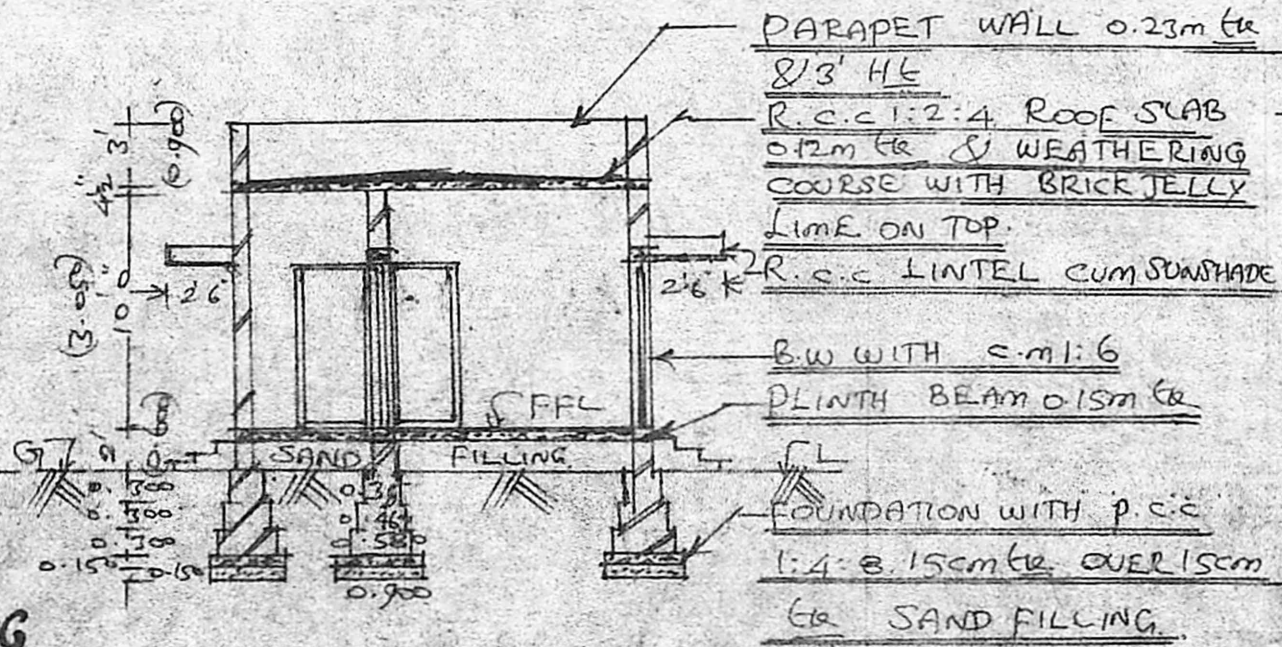 PARAPET WALL 0.23m tk
& 3' Ht
R.C.C 1:2:4 ROOF SLAB
0.12m tk & WEATHERING
COURSE WITH BRICK JELLY
LIME ON TOP.
R.C.C LINTEL CUM SUNSHADE
B.W WITH C.M 1:6
PLINTH BEAM 0.15m tk
FOUNDATION WITH P.C.C
1:4:8. 15cm tk OVER 15cm
tk SAND FILLING.
3'
(0.900)
4½"
10'0"
(3.050)
2'6"
2'6"
FFL
2'
SAND FILLING
0.300
0.300
0.150
0.150
0.900
G